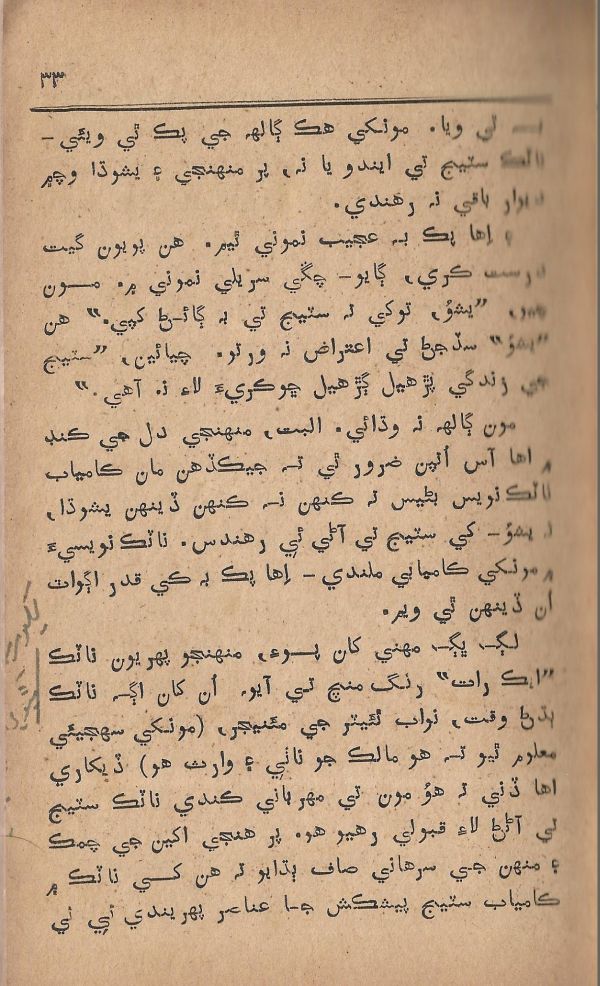 ۳۳
ٿي ويا. مونکي هڪ ڳالهہ جي پڪ ٿي ويئي-
ناٽڪ سٽيج تي ايندو يا نہ، پر منهنجي ۽ يشوڌا وچ۾
ديوار باقي نہ رهندي.
۽ اِها پڪ بہ عجيب نموني ٿيم. هن پويون گيت
درست ڪري، ڳايو- چڱي سريلي نموني ۾. مون
چيو، ”يشوُ، توکي تہ سٽيج تي بہ ڳائڻ کپي.“ هن
”يشوُ“ سڏجڻ تي اعتراض نہ ورتو. چيائين، ”سٽيج
جي زندگي پڙهيل ڳڙهيل ڇوڪريءَ لاءِ نہ آهي.“
مون ڳالهہ نہ وڌائي. البت، منهنجي دل جي ڪنڊ
۾ اها آس اُتپن ضرور ٿي تہ جيڪڏهن مان ڪامياب
ناٽڪ نويس بڻيس تہ ڪنهن نہ ڪنهن ڏينهن يشوڌا،
نہ يشوُ- کي سٽيج تي آڻي ئي رهندس. ناٽڪ نويسيءَ
۾ مونکي ڪاميابي ملندي- اِها پڪ بہ ڪي قدر اڳواٽ
اُن ڏينهن ٿي ويم.
لڳ ڀڳ مهني کان پوءِ، منهنجو پهريون ناٽڪ
”اِڪ رات“ رنگ منچ تي آيو. اُن کان اڳہ ناٽڪ
ٻڌڻ وقت، نواب ٿئيٽر جي مئنيجر، (مونکي سهجيئي
معلوم ٿيو تہ هو مالڪ جو ناٺي ۽ وارث هو) ڏيکاري
اها ڏني تہ هوُ مون تي مهرباني ڪندي ناٽڪ سٽيج
تي آڻڻ لاءِ قبولي رهيو هو. پر هنجي اکين جي چمڪ
۽ منهن جي سرهائي صاف ٻڌايو تہ هن کي ناٽڪ ۾
ڪامياب سٽيج پيشڪش جا عناصر پهريندي ئي ئي